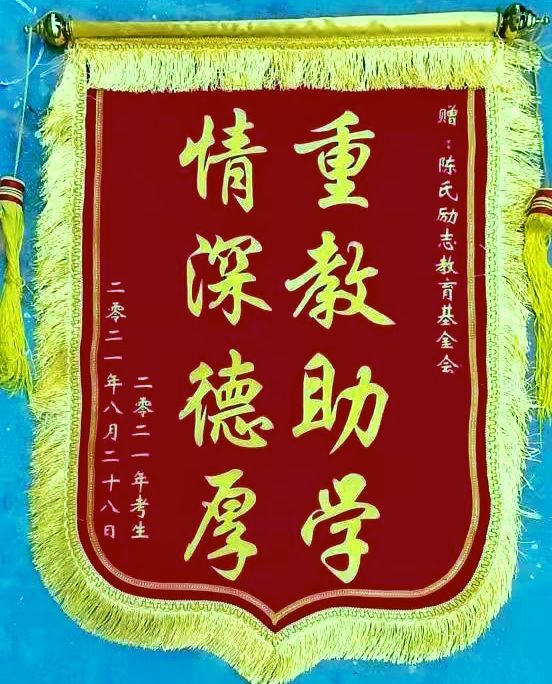 赠：陈氏励志教育基金会
重教助学
情深德厚
二零二一年考生
二零二一年八月二十八日